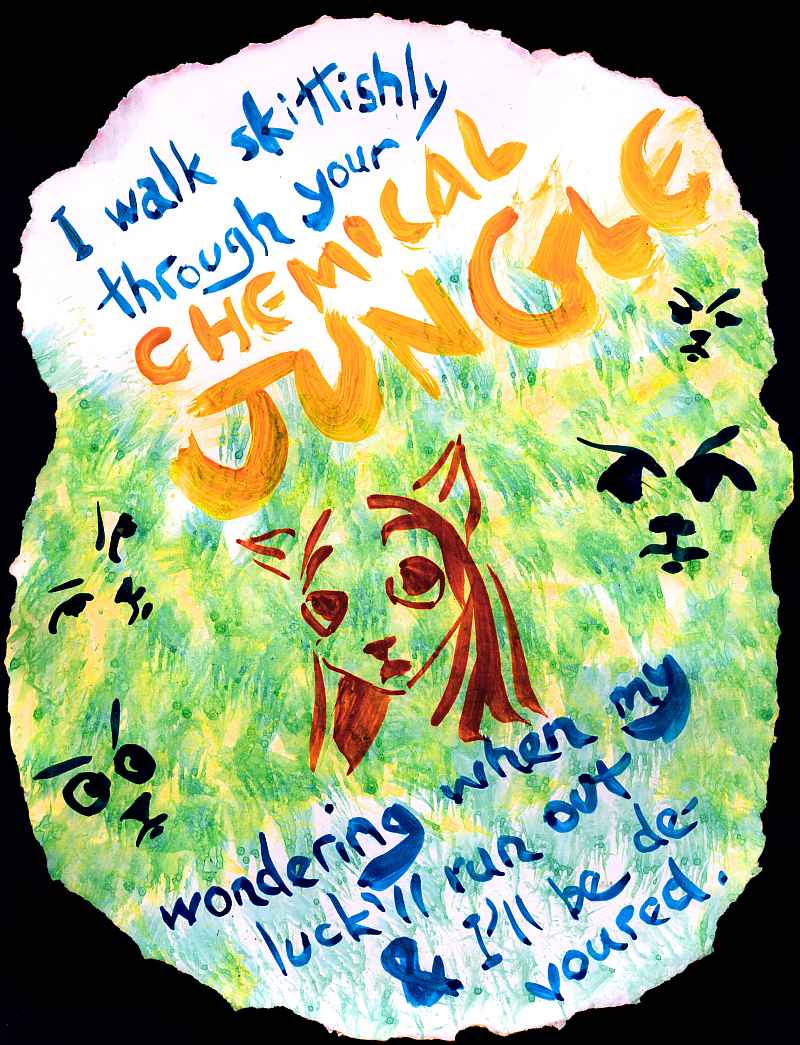 I walk skittishly
through your
CHEMICAL
JUNGLE
wondering when my
luck'll run out
& I'll be de-
voured.